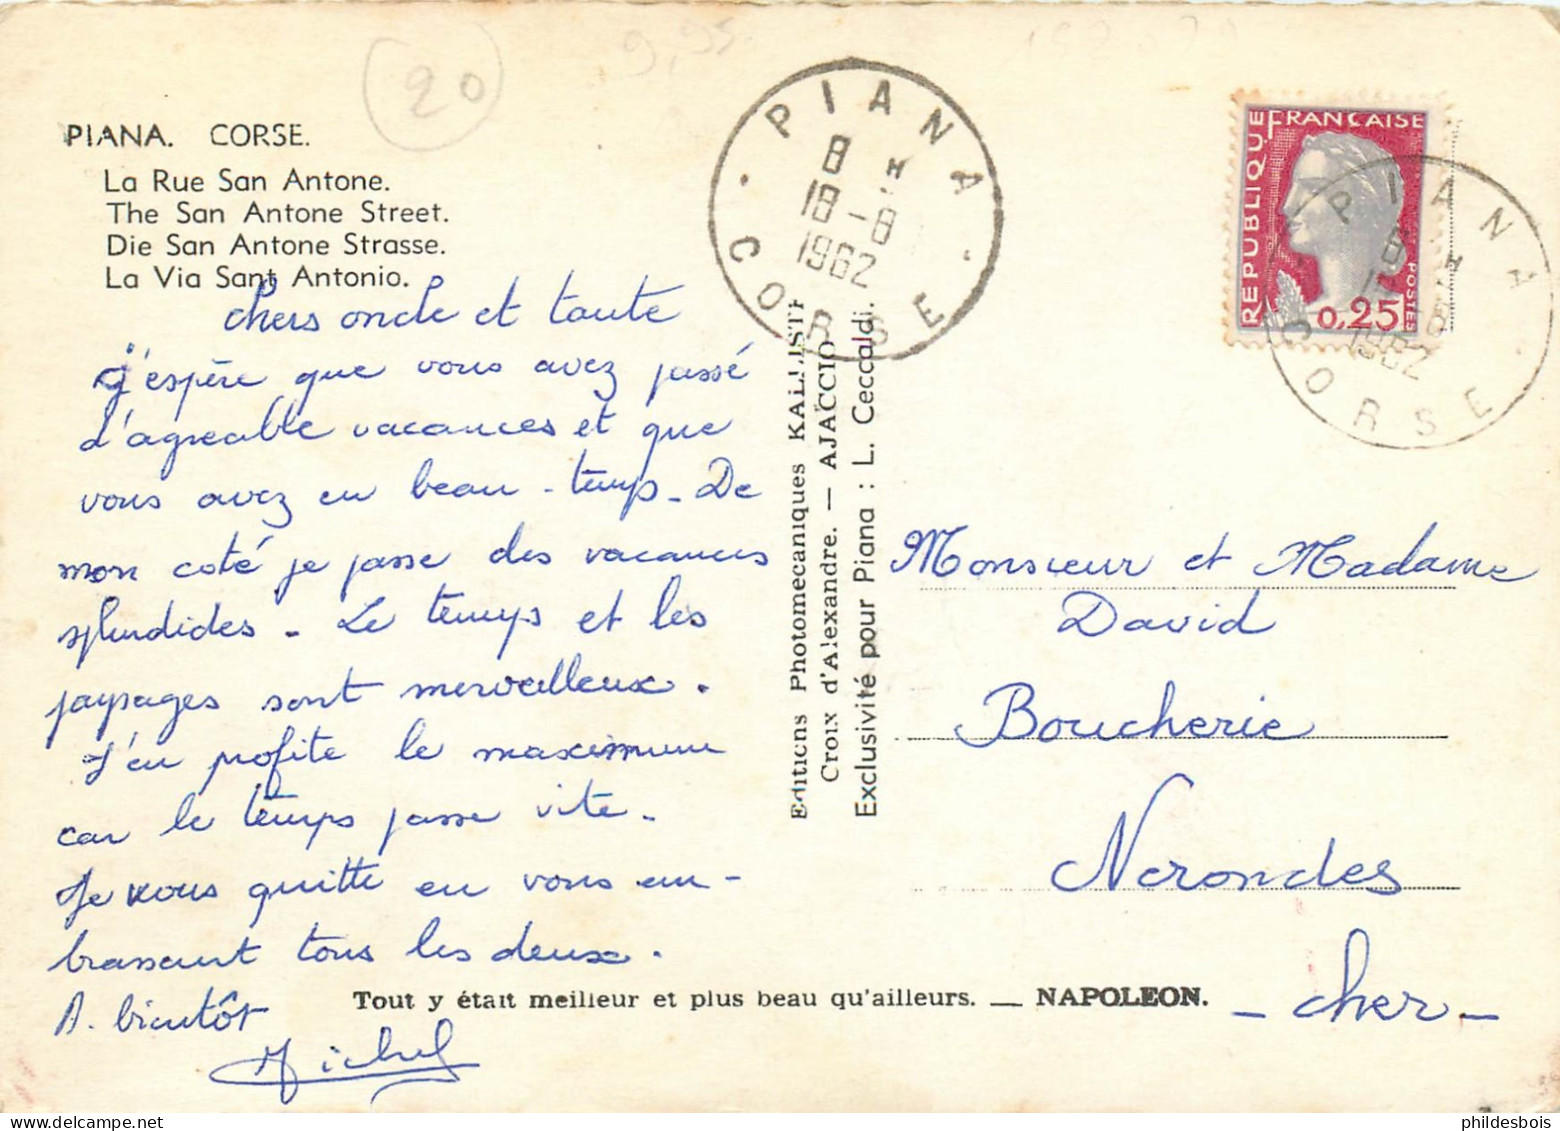 20
9,95
PIANA. CORSE.
La Rue San Antone.
The San Antone Street.
Die San Antone Strasse.
La Via Sant Antonio.
chers oncle et tante
J'espère que vous avez passé
d'agreable vacances et que
vous avez eu beau-temps. De
mon coté je passe des vacances
splendides. Le temps et les
paysages sont merveilleux.
J'en profite le maximum
car le temps passe vite.
Je vous quitte en vous em-
brassant tous les deux.
A. bientôt
Michel
PIANA
8 H
18-8
1962
CORSE
Editions Photomecaniques KALLISTE
Croix d'Alexandre. — AJACCIO
Exclusivité pour Piana : L. Ceccaldi.
REPUBLIQUE FRANCAISE
0,25
POSTES
PIANA
8 H
1962
CORSE
Monsieur et Madame
David
Boucherie
Nerondes
- cher -
Tout y était meilleur et plus beau qu'ailleurs. — NAPOLEON.
phildesbois